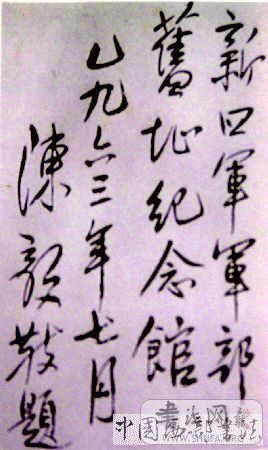 新四軍軍部
舊址紀念館
一九六三年七月
陳毅敬題
書法网
中国
书法